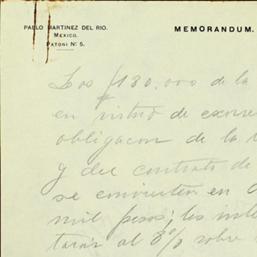 PABLO MARTINEZ DEL RIO.
MEXICO.
PATONI Nº 5.
MEMORANDUM.
Los $180.000 de la
en virtud de
obligacon de la
y del contrato de
se convierten en
mil pesos; los
al 8% sobre